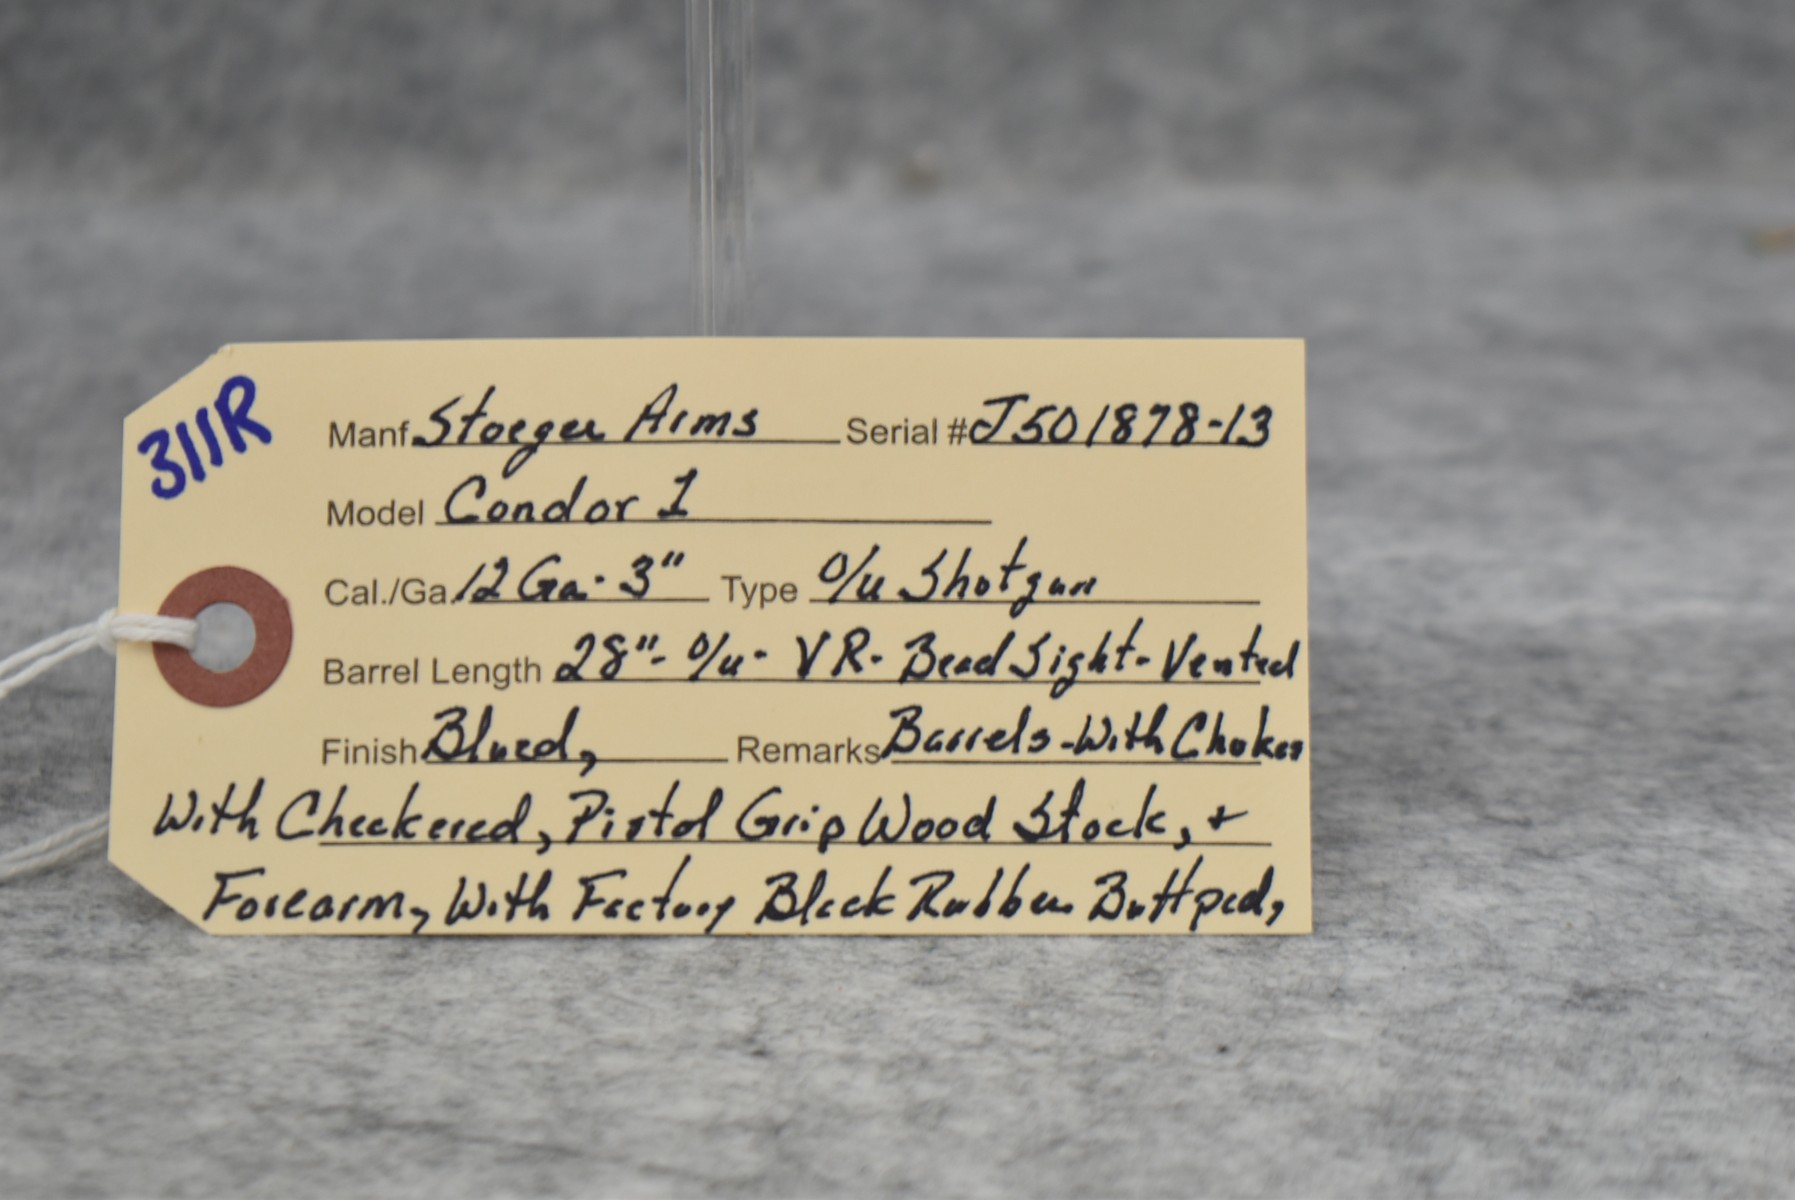 311R
Manf. Stoeger Arms Serial # J501878-13
Model Condor 1
Cal./Ga. 12 Ga. - 3" Type O/U Shotgun
Barrel Length 28" - O/U - VR - Bead Sight - Vented
Finish Blued, Remarks Barrels - With Chokes
With Checkered, Pistol Grip Wood Stock, +
Forearm, With Factory Black Rubber Buttpad,